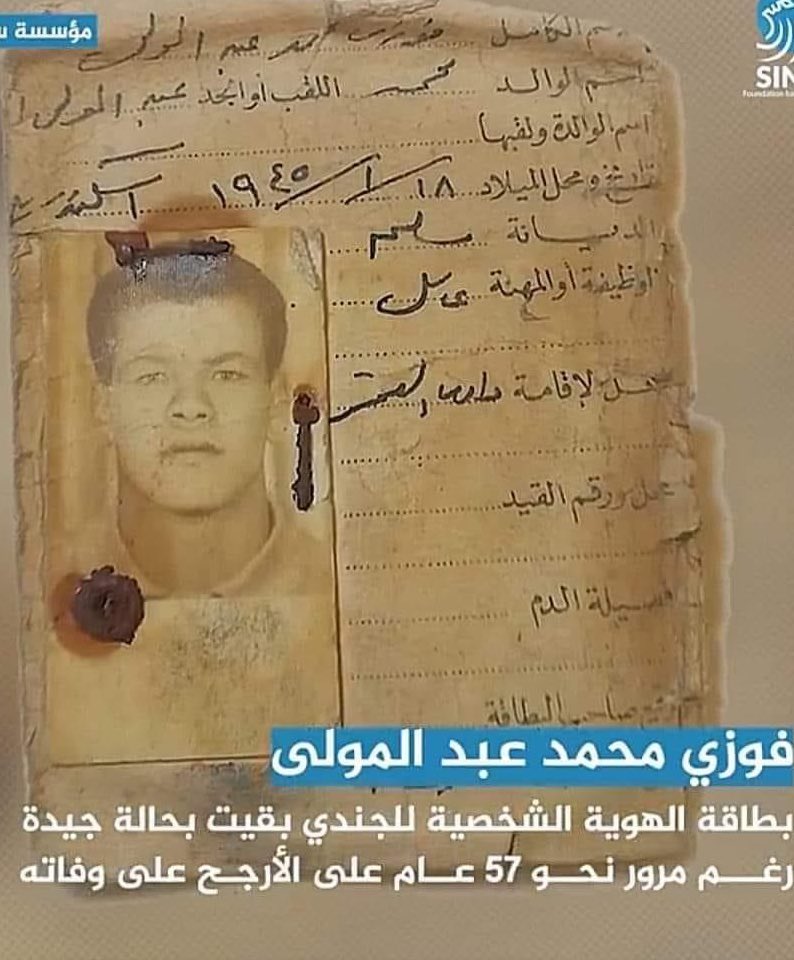 مؤسسة س
SIN
Foundation for
الكامل فوزى محمد عبد المولى
اسم الوالد محمد اللقب أو الجد عبد المولى
اسم الوالدة ولقبها
تاريخ ومحل الميلاد ١٨/ ١/ ١٩٤٥
الديانة مسلم
الوظيفة أو المهنة
محل لإقامة
محل ورقم القيد
فصيلة الدم
توقيع صاحب البطاقة
فوزي محمد عبد المولى
بطاقة الهوية الشخصية للجندي بقيت بحالة جيدة
رغم مرور نحو 57 عام على الأرجح على وفاته